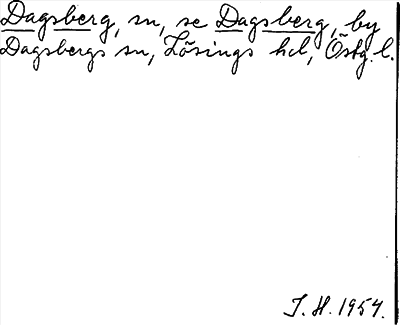 Dagsberg, sn, se Dagsberg, by
Dagsbergs sn, Lösings hd, Östg. l.
I. H. 1954.